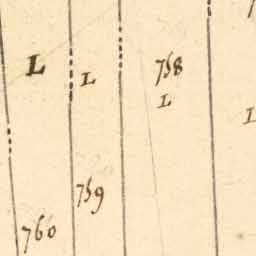 L
L
758
L
L
759
760